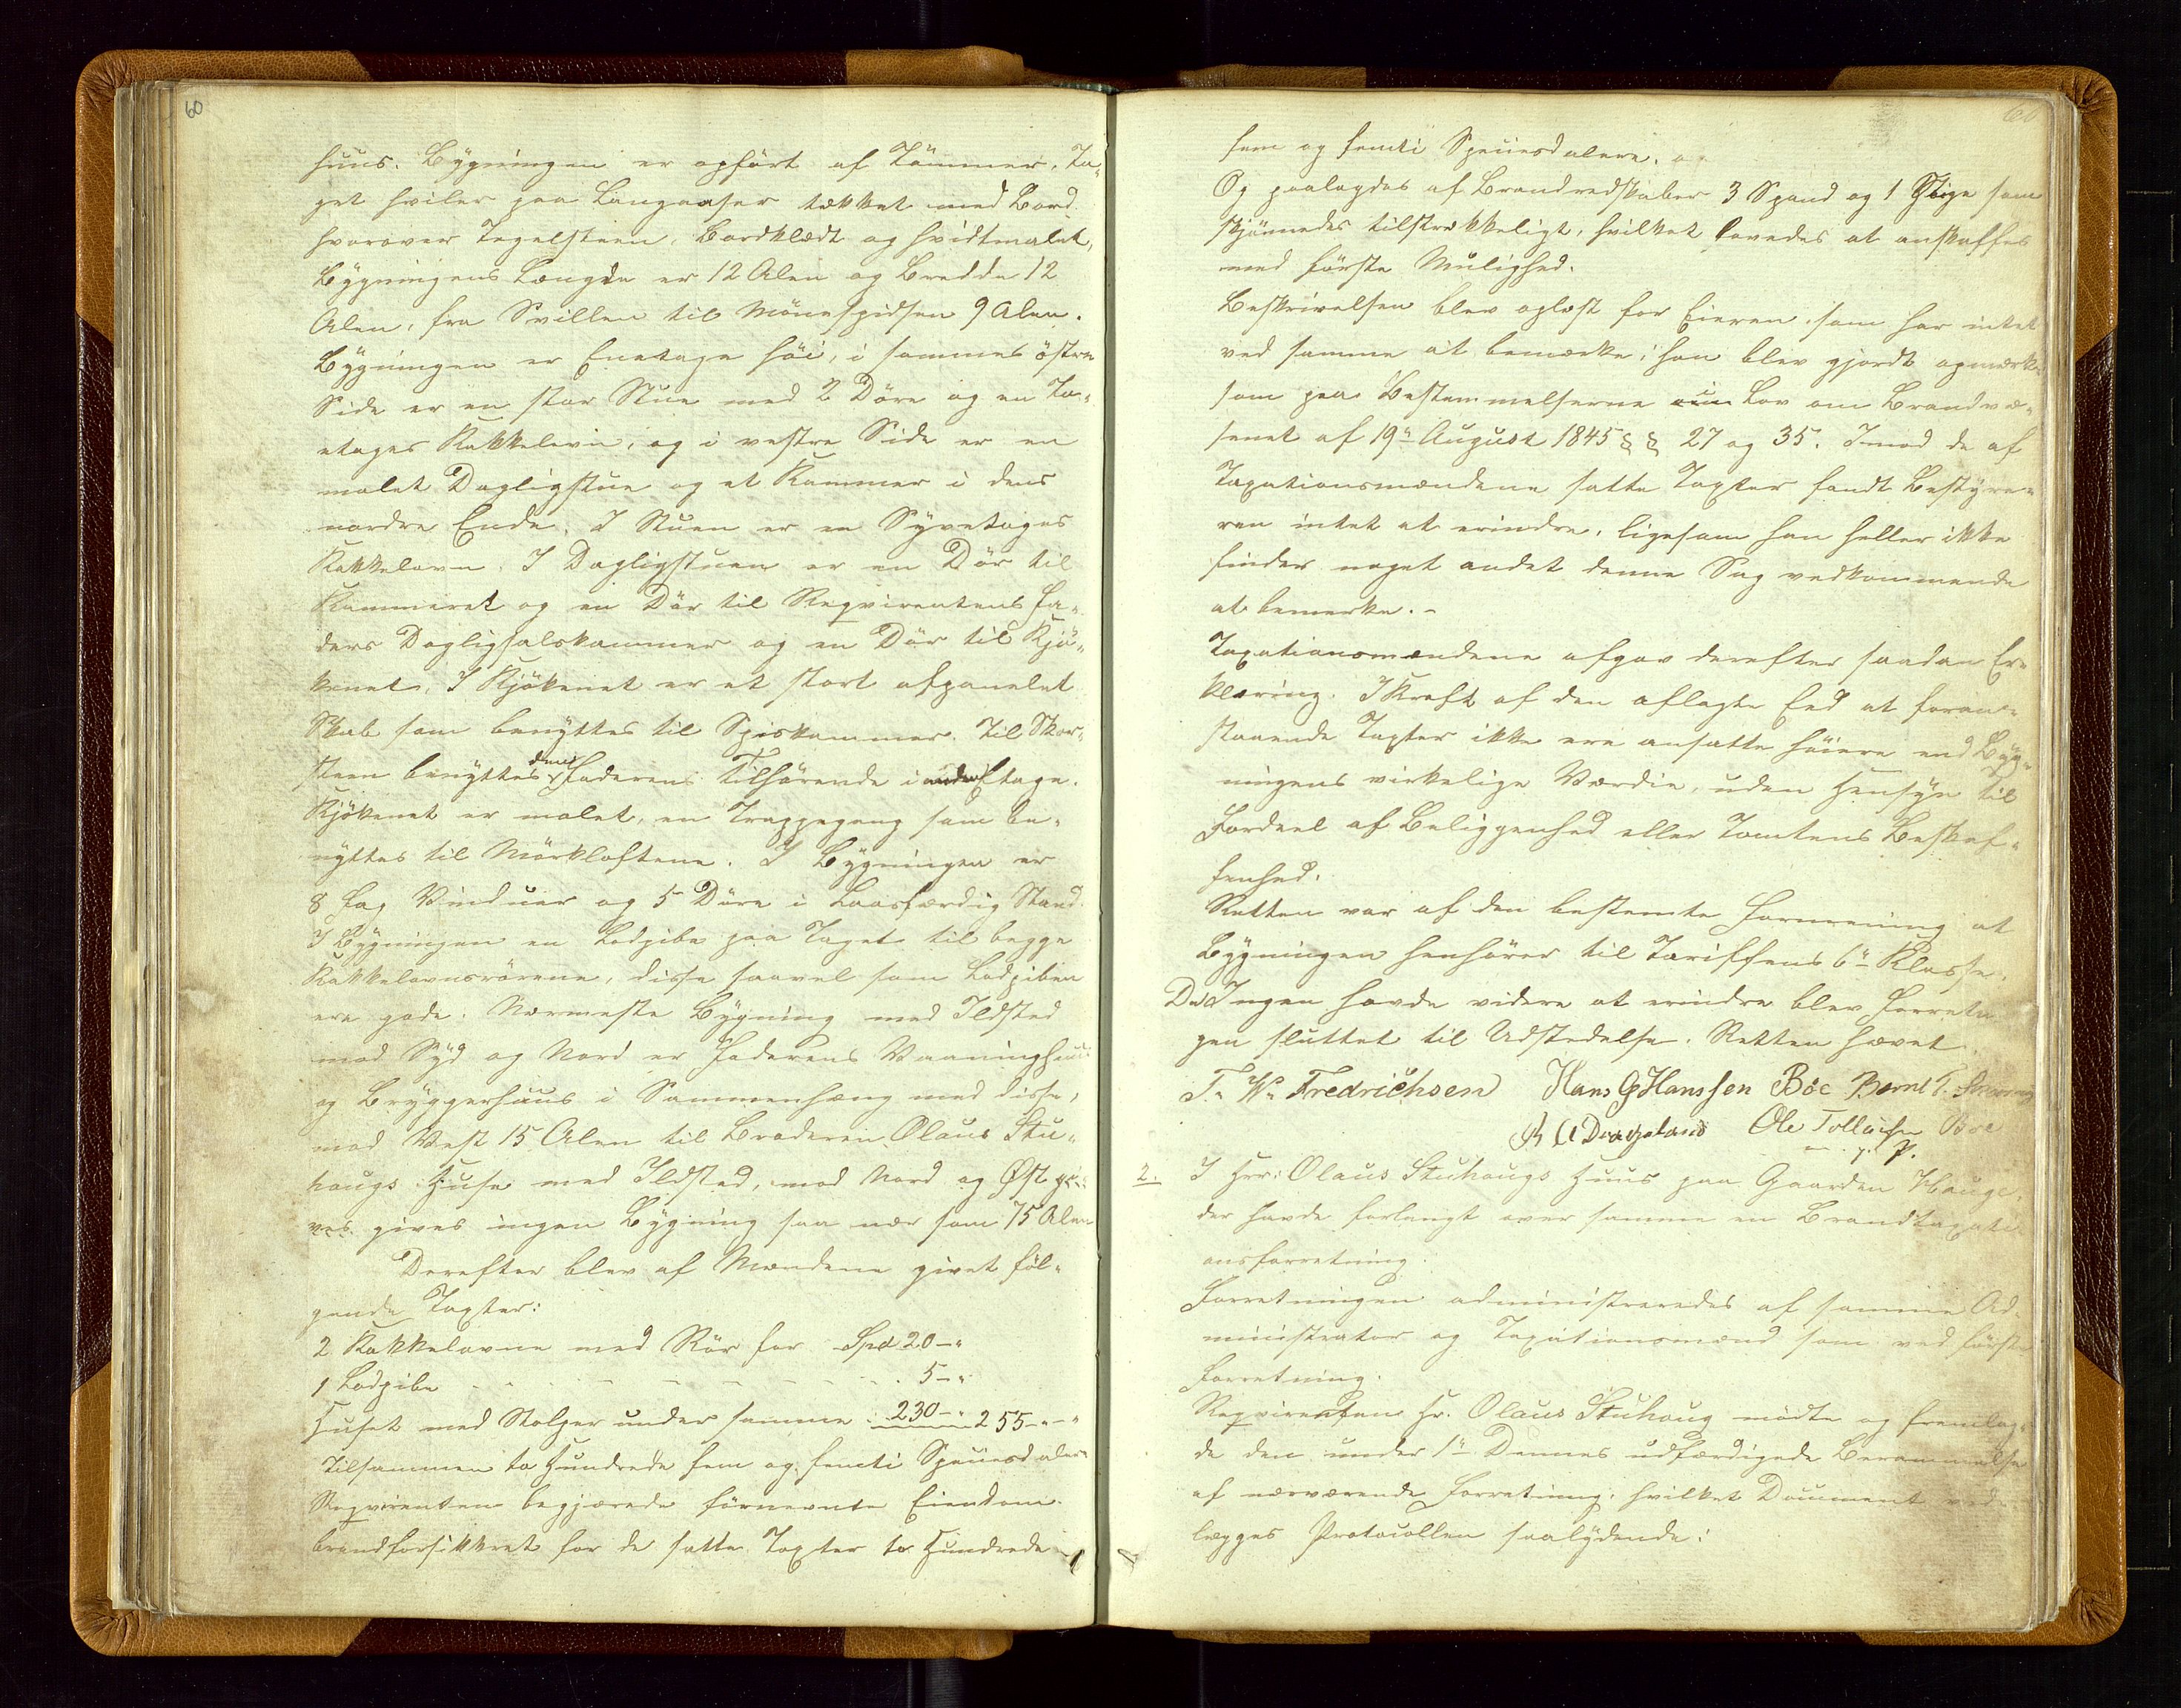 60
huus. Bygningen er opført af Tømmer. Ta„
get hviler paa Langaaser tækket med Bord
hvorover Tegelsteen, Bordklædt og hvidtmalet,
Bygningens Længde er 12 Alen og Bredde 12
Alen, fra Svillen til Mønespidsen 9 Alen.
Bygningen er Enetage høi, i sammes østre
Side er en stor Stue med 2 Døre og en To„
etages Kakkelovn, og i vestre Side er en
malet Dagligstue og et Kammer i dens
nordre Ende. I Stuen er en Syvetages
Kakkelovn. I Dagligstuen er en Dør til
Kammeret og en Dør til Reqvirentens Fa„
ders Dagligsalskammer og en Dør til Kjø„
kenet. I Kjøkenet er et stort afpanelet
Skab som benyttes til Spiskammer. Til Skor„
steen benyttes den Faderens Tilhørende i anden Etage.
Kjøkenet er malet, en Trappegang som be„
nyttes til Mørkloftene. I Bygningen er
8 Fag Vinduer og 5 Døre i Laasfærdig Stand.
I Bygningen en Lodpibe paa Taget til begge
Kakkelovnsrørene, disse saavel som Lodpiben
ere gode. Nærmeste Bygning med Ildsted
mod Syd og Nord er Faderens Vaaninghuus
og Bryggerhuus i Sammenhæng med disse,
mod Vest 15 Alen til Broderen Olaus Stu„
haugs Huse med Ildsted, mod Nord og Øst gi„
ves gives ingen Bygning saa nær som 75 Alen
Derefter blev af Mændene givet føl„
gende Taxter:
2 Kakkelovne med Rør for Spd 20 – „
1 Lodpibe 5 – „
Huset med Stolper under samme 230 – „ 255 – „ – „
Tilsammen to Hundrede fem og femti Speciesdaler
Reqvirenten begjærede førnevnte Eiendom
brandforsikkret for de satte Taxter to Hundrede
60
fem og femti Speciesdalere.
Og paalagdes af Brandredskaber 3 Spand og 1 Stige som
skjønnedes tilstrækkeligt, hvilket lovedes at anskaffes
med første Mulighed.
Beskrivelsen blev oplæst for Eieren, som har intet
ved samme at bemærke; han blev gjordt opmærk„
som paa Bestemmelserne i Lov om Brandvæ„
senet af 19de August 1845 §§ 27 og 35. Imod de af
Taxationsmændene satte Taxter fandt Bestyre„
ren intet at erindre, ligesom han heller ikke
finder noget andet denne Sag vedkommende
at bemerke. –
Taxationsmændene afgav derefter saadan Er„
klæring. I Kraft af den aflagte Eed at foran„
staaende Taxter ikke ere ansatte høiere end Byg„
ningens virkelige Værdie, uden Hensyn til
Fordeel af Beliggenhed eller Tomtens Beskaf„
fenhed.
Retten var af den bestemte Formening at
Bygningen henhører til Tariffens 6te Klasse.
Da Ingen havde videre at erindre blev Forretn
gen sluttet til Udstedelse. Retten hævet.
T. W. Fredrichsen Hans G Hanssen Böe Bernt T.
A A Drageland Ole Tollacsen Böe
2. I Hrr: Olaus Stuhaugs Huus paa Gaarden Hauge,
der havde forlangt over samme en Brandtaxati
onsforretning.
Forretningen administreredes af samme Ad„
ministrator og Taxationsmænd som ved første
Forretning.
Reqvirenten Hr. Olaus Stuhaug mødte og fremlag„
de den under 1ste Dennes udfærdigede Berammelse
af nærværende Forretning, hvilket Document ved„
lægges Protocollen saalydende: